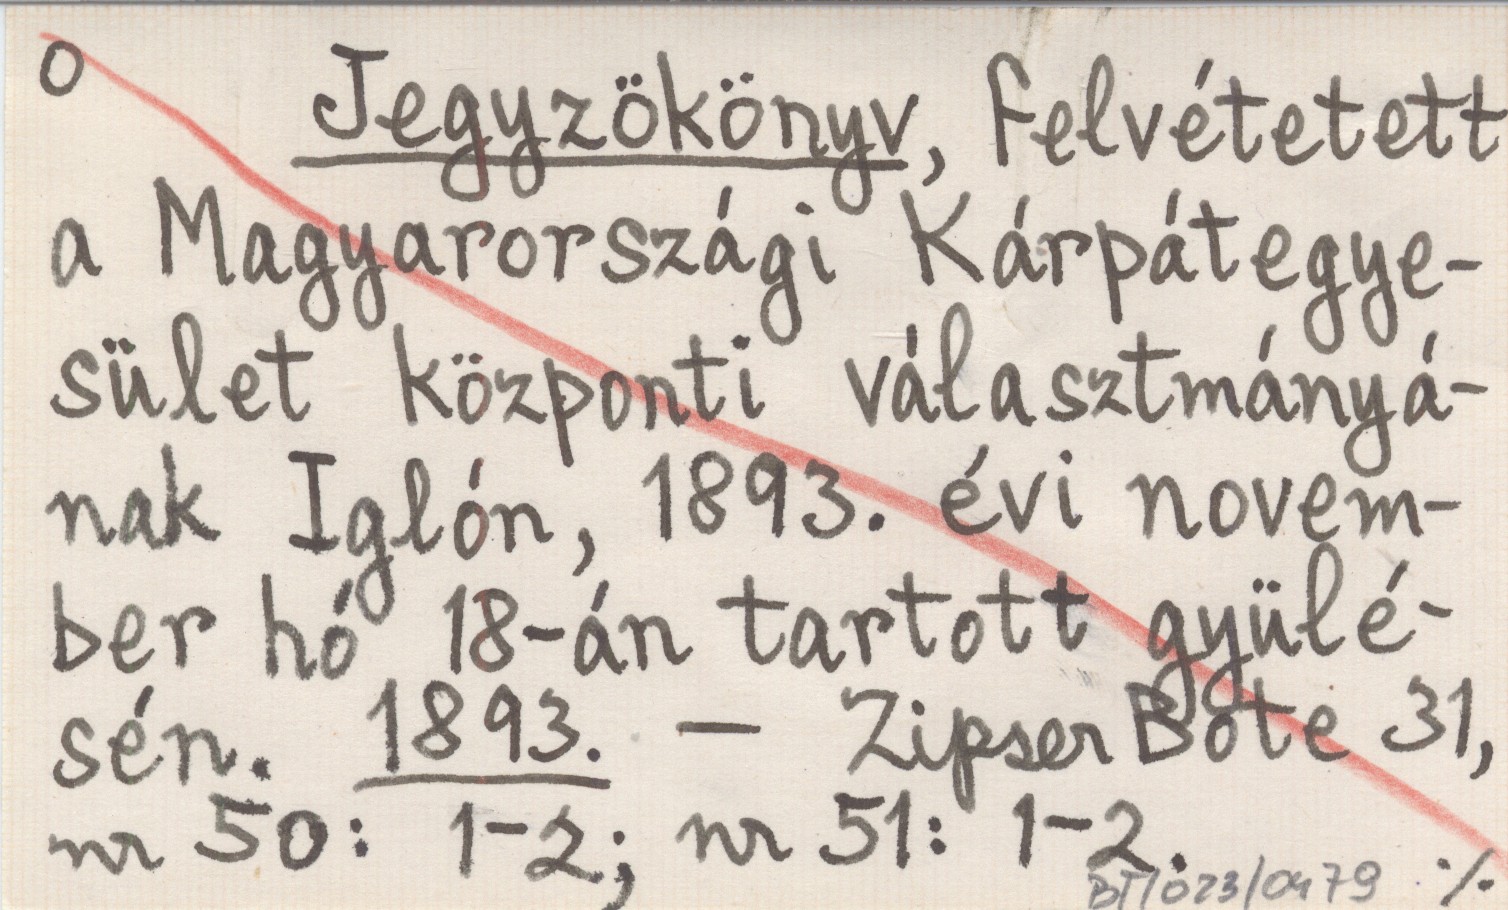 o Jegyzökönyv, felvétetett
a Magyarországi Kárpátegye-
sület központi választmányá-
nak Iglón, 1893. évi novem-
ber hó 18-án tartott gyülé-
sén. 1893. — Zipser Bote 31,
nr 50: 1-2; nr 51: 1-2.
BT/023/0479 ·/.